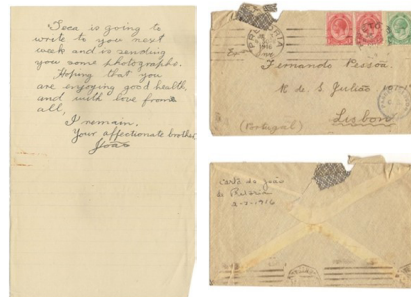 Teca is going to
write to you next
week and is sending
you some photographs.
Hoping that you
are enjoying good health
and with love from
all,
I remain.
Your affectionate brother
João
PRETORIA
1916
Fernando Pessoa
R. de S. Julião
Lisbon
(Portugal)
Carta do João
de Pretoria
1916